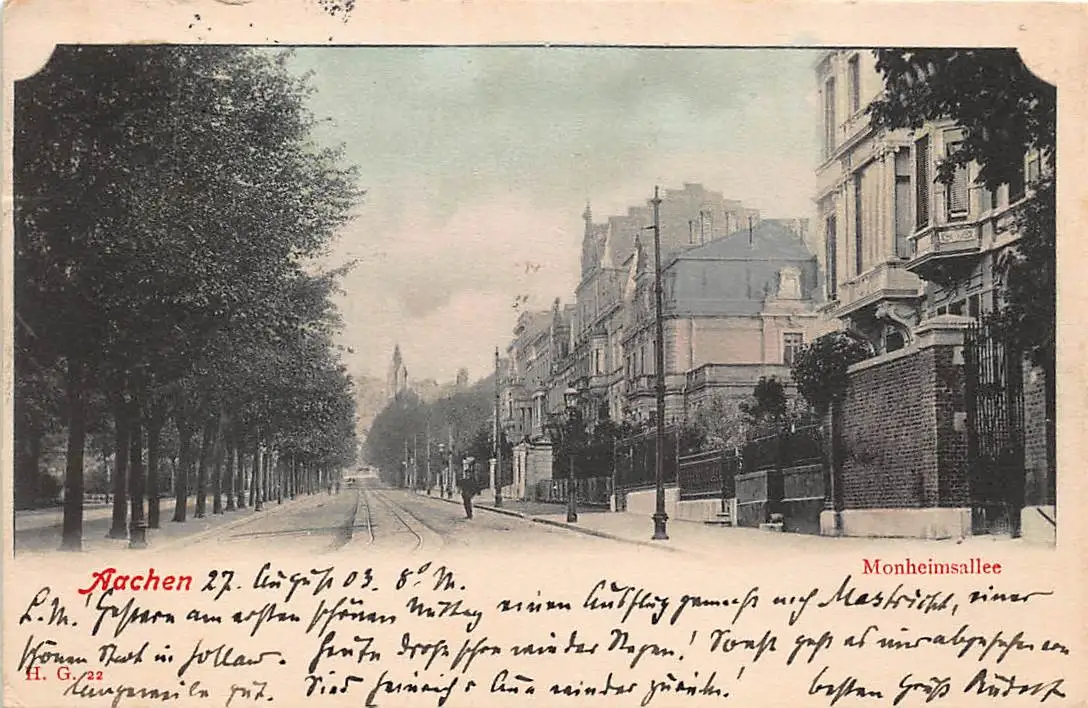 Aachen 27. August 03. 8⁰ M.
Monheimsallee
L. M.! Gestern am ersten schönen Mittag einen Ausflug gemacht nach Mastricht, einer
schönen Stadt in Holland. Heute droht schon wieder Regen! Sonst geht es mir abgesehen von
Langerweile gut. Sind Heinrich & Änn wieder zurück! besten Gruß Rudolf
H. G. 22